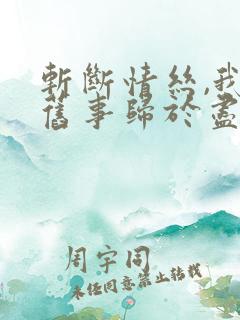 斬斷情絲,我
舊事歸於盡
周宇同
未经同意禁止转载